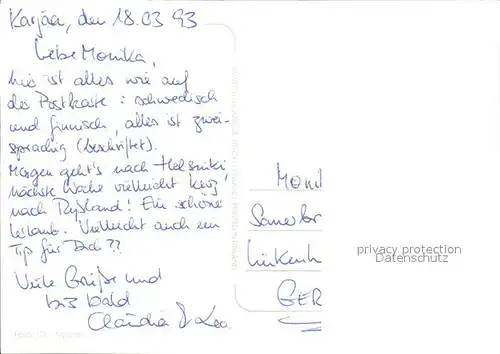 Karjaa, den 18.03 93
Liebe Monika,
hier ist alles wie auf
der Postkarte : schwedisch
und finnisch, alles ist zwei-
sprachig (beschriftet).
Morgen geht's nach Helsinki
nächste Woche vielleicht kurz
nach Rußland! Ein schöner
Urlaub. Vielleicht auch ein
Tip für Dich??
Viele Grüße und
bis bald
Claudia & Leo.
Moni
Sauer
Lükenh
GER
privacy protection
Datenschutz